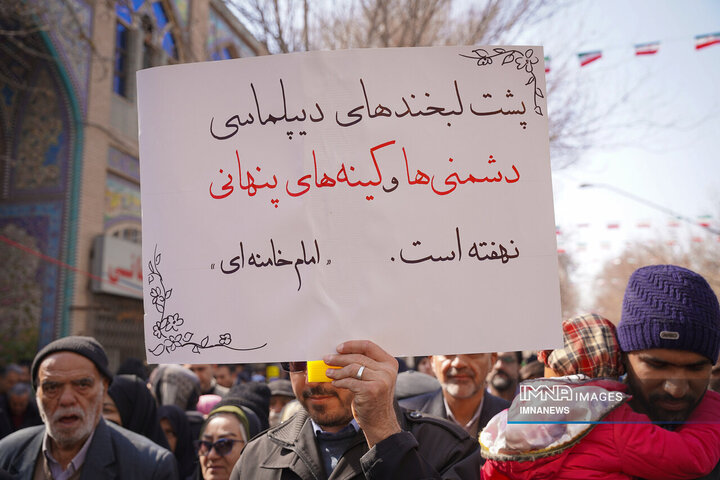 پشت لبخندهای دیپلماسی
دشمنی‌ها و کینه‌های پنهانی
نهفته است. « امام خامنه ای »
IMNA IMAGES
IMNANEWS